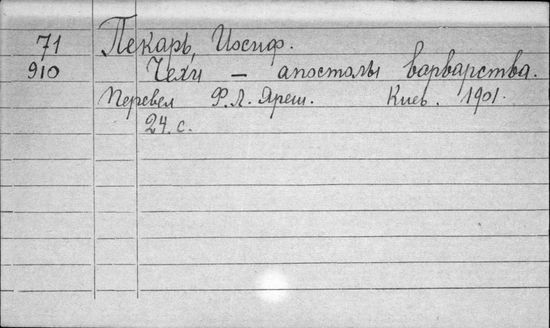 71 Пекарь, Иосиф.
910 Чехи – апостолы варварства.
Перевел Ф. Л. Яреш. Киев. 1901.
24. с.